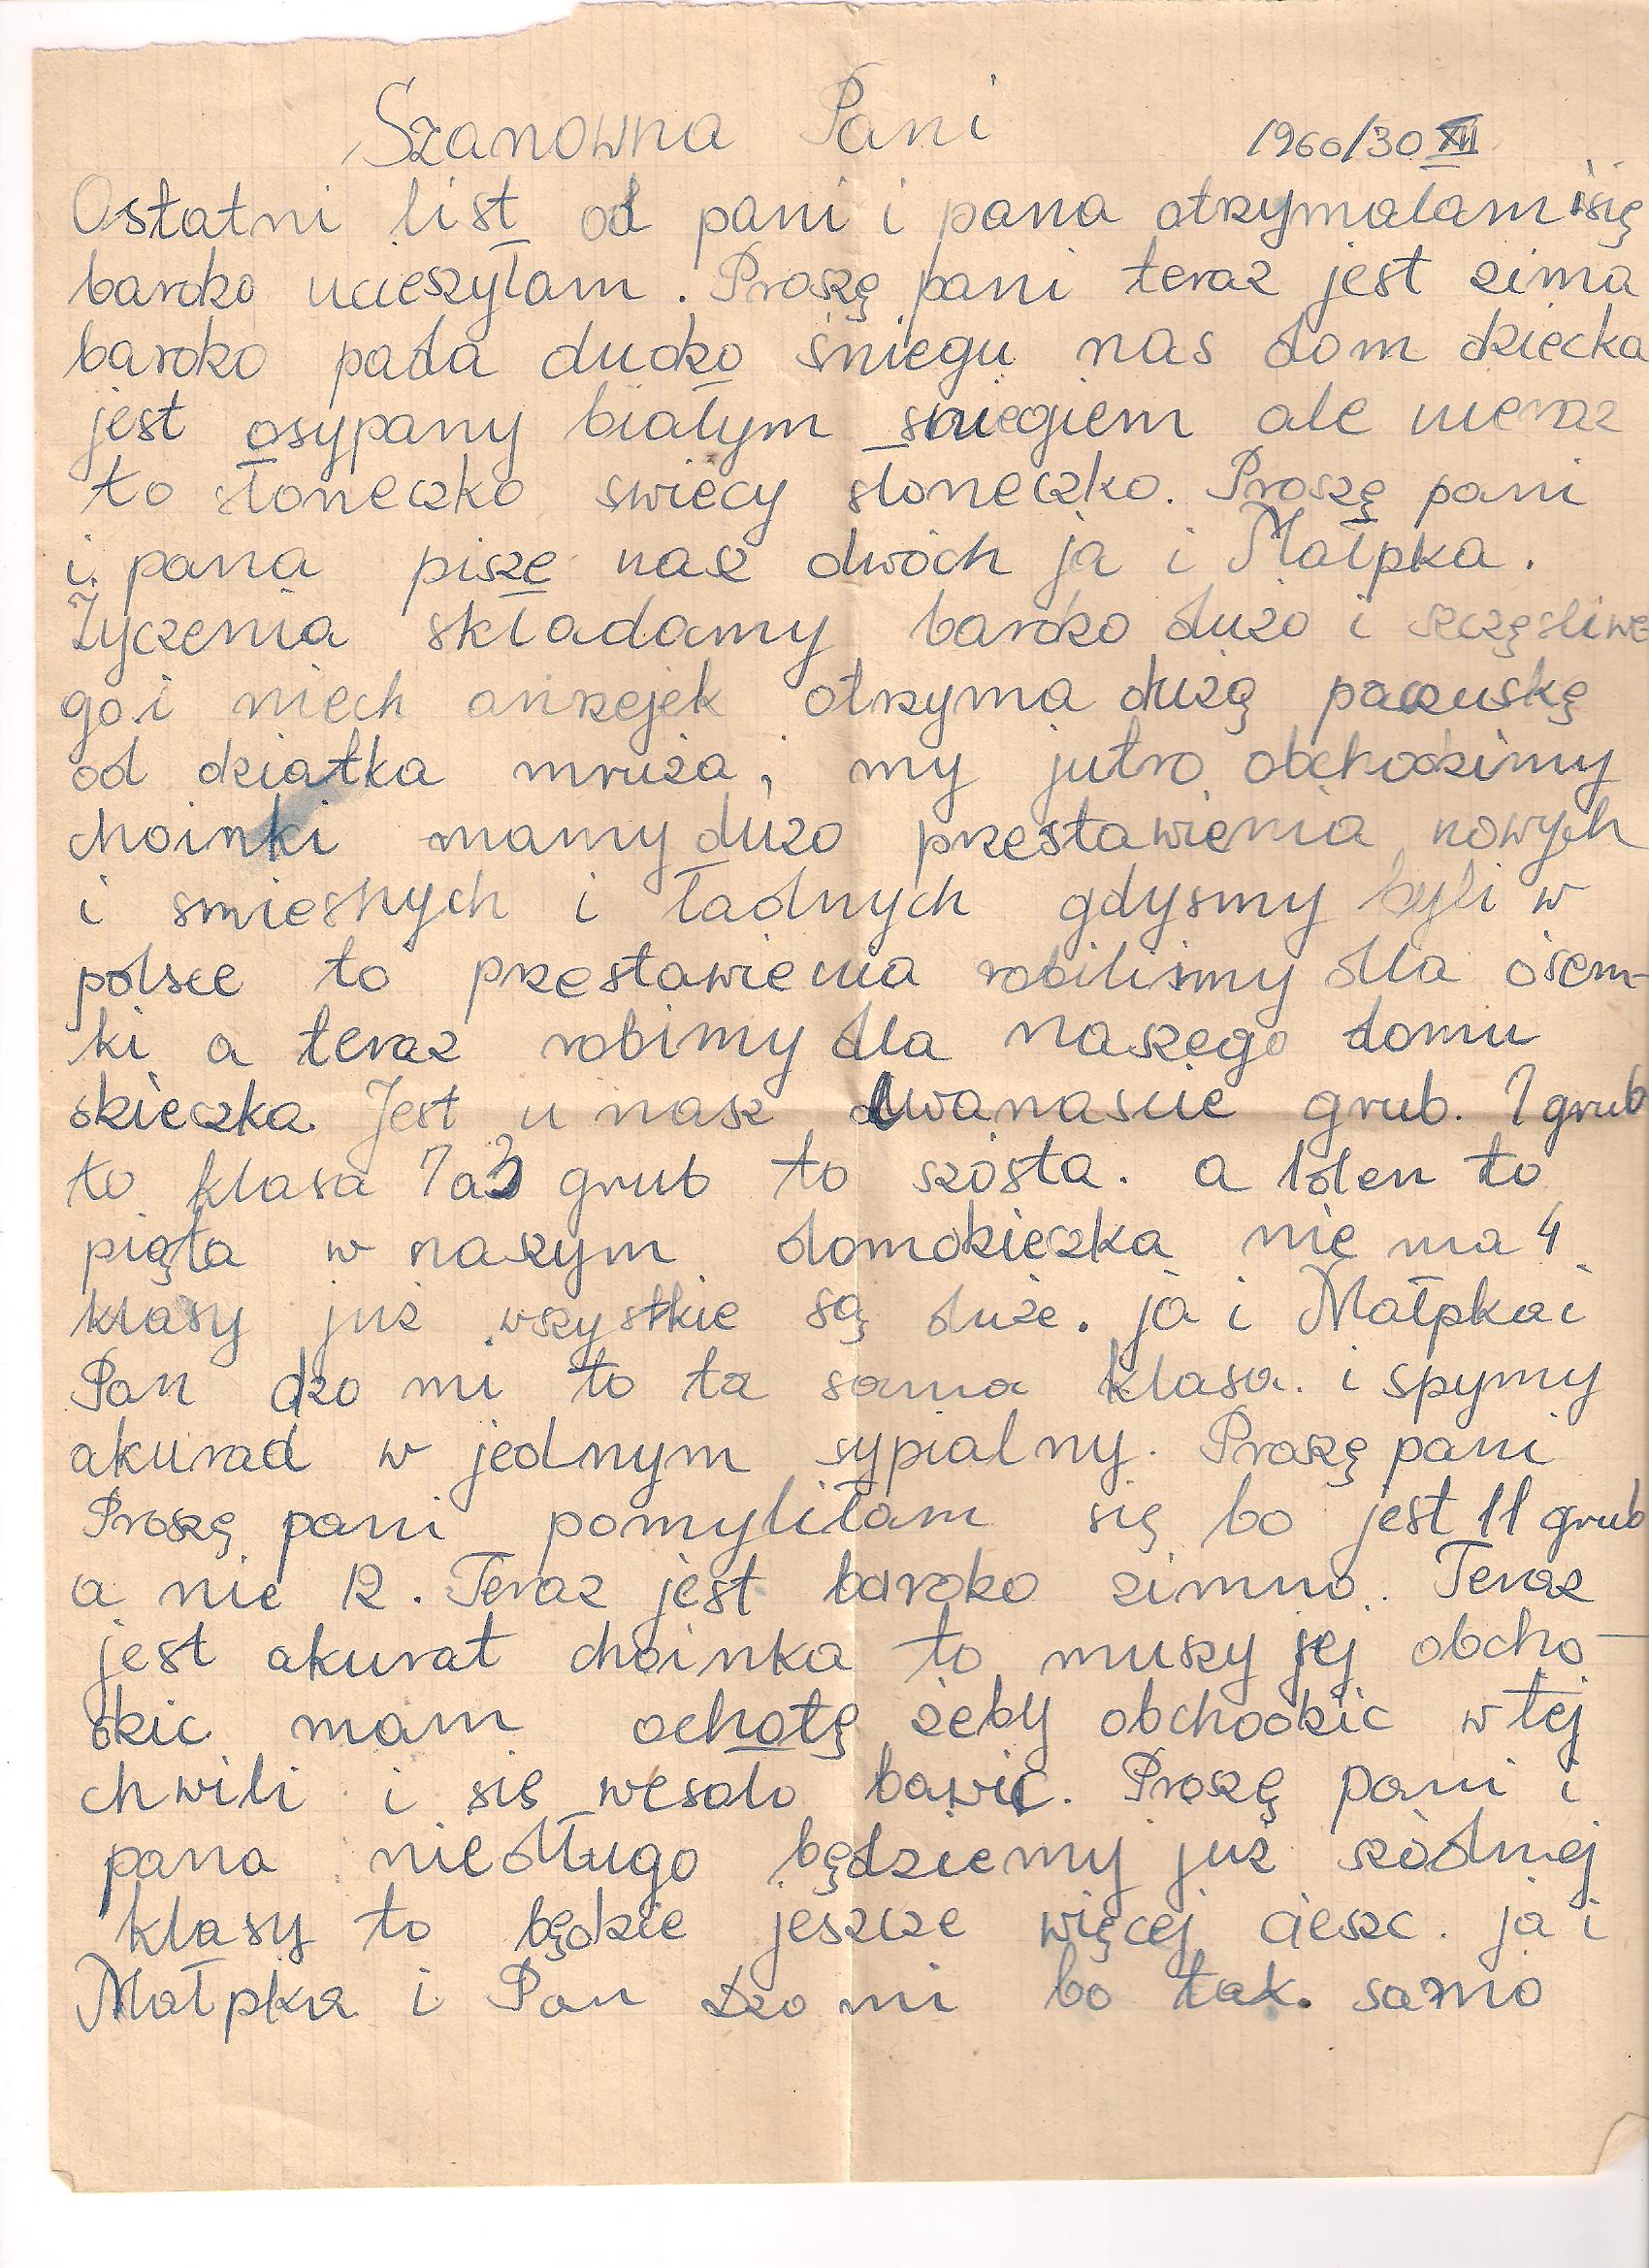 Szanowna Pani 1960/30 XII
Ostatni list od pani i pana otrzymałam i się
bardzo ucieszyłam. Proszę pani teraz jest zima
bardzo pada dudzo śniegu nas dom dziecka
jest osypany białym sniegiem ale nieraz
to słoneczko swiecy słoneczko. Proszę pani
i pana pisze nas dwóch ja i Małpka.
Życzenia składamy bardzo dużo i szczęsliwe
go i niech anrzejek otrzyma dużą paczuskę
od dziatka mruza, my jutro obchodzimy
choinki mamy dużo przestawienia nowych
i smiesnych i ładnych gdysmy byli w
polsce to przestawienia robilismy dla ósem-
ki a teraz robimy dla naszego domu
dzieczka. Jest u nasz dwanascie grub. 1 grub
to klasa 7 a 3 grub to szósta. a 1 den to
pięta w naszym domdzieczka nie ma 4
klasy już wszystkie są duże. ja i Małpka i
Pan dzo mi to ta sama klasa. i spymy
akurad w jednym sypialny. Proszę pani
Proszę pani pomyliłam się bo jest 11 grub
a nie 12. Teraz jest bardzo zimno. Teraz
jest akurat choinka to muszy jej obcho-
dzic mam ochotę żeby obchodzic w tej
chwili i się wesolo bawic. Proszę pani i
pana niedługo będziemy już siódmej
klasy to będzie jeszcze więcej ciesc. ja i
Małpka i Pan Dzo mi bo tak. samo